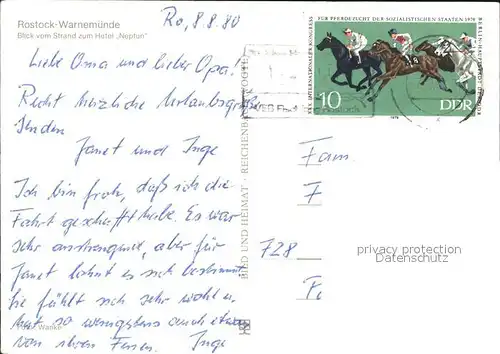 Rostock-Warnemünde
Blick vom Strand zum Hotel „Neptun"
Ro, 8.8.80
Liebe Oma und lieber Opa!
Recht herzliche Urlaubsgrüße
senden
Janet und Inge
Ich bin froh, daß ich die
Fahrt geschafft habe. Es war
sehr anstrengend, aber für
Janet lohnt es sich bestimmt.
Sie fühlt sich sehr wohl u.
hat so wenigstens auch etwas
von ihren Ferien. Inge
BILD UND HEIMAT · REICHENBACH
XXV. INTERNATIONALER KONGRESS FÜR PFERDEZUCHT DER SOZIALISTISCHEN STAATEN 1978
10
DDR
1978
VEB
Fam.
F
728
privacy protection
Datenschutz